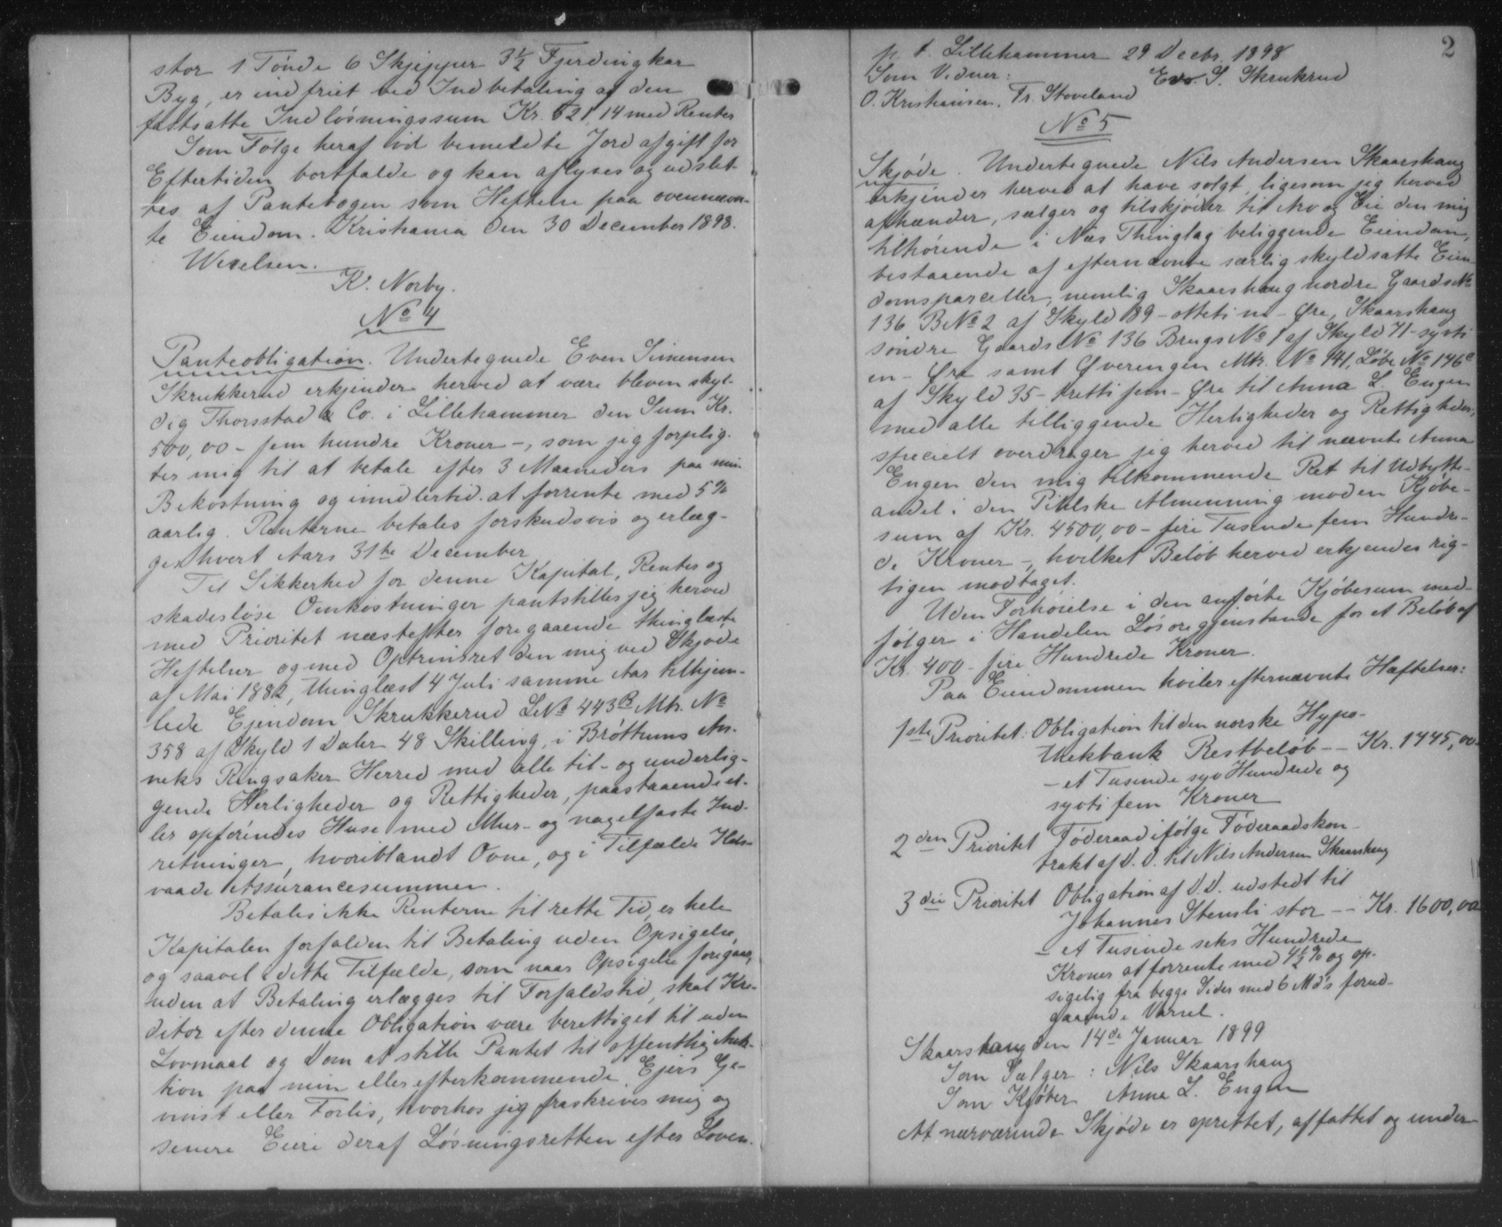 stor 1 Tønde 6 Skjepper 3½ Fjerdingkar
Byg, er indfriet ved Indbetaling af den
fastsatte Indløsningssum Kr. 621,14 med Renter
Som Følge heraf vil bemeldte Jordafgift for
Eftertiden bortfalde og kan aflyses og udslet-
tes af Pantebogen som Heftelse paa ovennævn-
te Eiendom. Kristiania den 30 December 1898.
Wexelsen.
K. Norby.
No 4
Panteobligation. Undertegnede Even Simensen
Skrukkerud erkjender herved at være bleven skyl-
dig Thorsstad & Co. i Lillehammer den Sum Kr.
500,00 - fem hundre Kroner -, som jeg forplig-
ter mig til at betale efter 3 Maaneders paa min
Bekostning og imidlertid at forrente med 5%
aarlig. Renterne betales forskudsvis og erlæg-
ges hvert Aars 31te December
Til Sikkerhed for denne Kapital, Renter og
skadesløse Omkostninger pantstiller jeg herved
med Prioritet næstefter foregaaende thinglæste
Heftelser og med Optrinsret den mig ved Skjøde
af Mai 1882, thinglæst 4 Juli samme Aar tilhjem-
lede Ejendom Skrukkerud LNo 443B Mtr. No
358 af Skyld 1 Daler 48 Skilling, i Brøttums An-
neks Ringsaker Herred med alle til- og underlig-
gende Herligheder og Rettigheder, paastaaende el-
ler opførendes Huse med Mur- og nagelfaste Ind-
retninger, hvoriblandt Ovne, og i Tilfælde Ilds-
vaade Assurancesummen.
Betales ikke Renterne til rette Tid, er hele
Kapitalen forfalden til Betaling uden Opsigelse,
og saavel i dette Tilfælde, som naar Opsigelse foregaar,
uden at Betaling erlægges til Forfaldstid, skal Kre-
ditor efter denne Obligation være berettiget til uden
Lovmaal og Dom at stille Pantet til offentlig Auk-
tion paa min eller efterkommende Ejers Ge-
vinst eller Forlis, hvorhos jeg fraskriver mig og
senere Eiere deraf Løsningsretten efter Loven.
2
p. t. Lillehammer 29 Decbr. 1898
Som Vidner: Even S. Skrukrud
O. Kristiansen. Fr. Stoveland
No 5
Skjøde. Undertegnede Nils Andersen Skaarshaug
erkjender herved at have solgt, ligesom jeg herved
afhænder, sælger og tilskjøder til Arv og Eie den mig
tilhørende i Næs Thinglag beliggende Eiendom,
bestaaende af efternævnte særlig skyldsatte Eien-
domsparceller, nemlig Skaarshaug nordre Gaards No
136 BNo 2 af Skyld 89 - otteti ni - Øre, Skaarshaug
søndre Gaards No 136 Brugs No 1 af Skyld 71 - sytti
en - Øre samt Øverengen Mtr. No 441, Løbe No 146c
af Skyld 35 - tretti fem - Øre til Anna L. Engen
med alle tilliggende Herligheder og Rettigheder,
specielt overdrager jeg herved til nævnte Anna
Engen den mig tilkommende Ret til Udbytte-
andel i den Pihlske Almenning mod en Kjøbe-
sum af Kr. 4500,00 - fire Tusende fem Hundre-
de Kroner -, hvilket Beløb herved erkjendes rig-
tigen modtaget.
Uden Forhøielse i den anførte Kjøbesum med-
følger i Handelen Løsøregjenstande for et Beløb af
Kr. 400 - fire Hundrede Kroner.
Paa Eiendommen hviler efternævnte Hæftelser:
1ste Prioritet: Obligation til den norske Hypo-
thekbank Restbeløb -- Kr. 1775,00
- et Tusinde syv Hundrede og
sytti fem Kroner
2den Prioritet Føderaad ifølge Føderaadskon-
trakt af D. D. til Nils Andersen Skaarshaug
3die Prioritet Obligation af D.D. udstedt til
Johannes Stensli stor -- Kr. 1600,00
- et Tusinde seks Hundrede
Kroner at forrente med 4½% og op-
sigelig fra begge Sider med 6 Md's forud-
gaaende Varsel.
Skaarshaug den 14de Januar 1899
Som Sælger: Nils Skaarshaug
Som Kjøber Anna L. Engen
At nærværende Skjøde er oprettet, affattet og under-